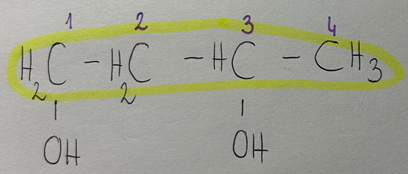 1 2 3 4
H₂C – H₂C – HC – CH₃
OH OH